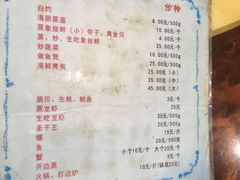 价格
白灼 8.00元/500g
海胆蒸蛋 10.00元/个
蒸象拔蚌（小）带子、黄金贝 4.00元/个
蒸、炒、生吃象拔蚌 25.00元/500g
炒蔬菜
做鱼煲 25.00元（小）
海鲜煮粥 35.00元（中）
45.00元（大）
扇贝、生蚝、鲍鱼 3元/个
蒸龙虾 25元
生吃龙虾 20元/500g
圣子王 20元/500g
螺 15元/斤
鱼 20元/500克
蟹 小个10元/个 大个20元/个
开边蒸 3元/个
火锅、打边炉 10元/斤（锅底20元）